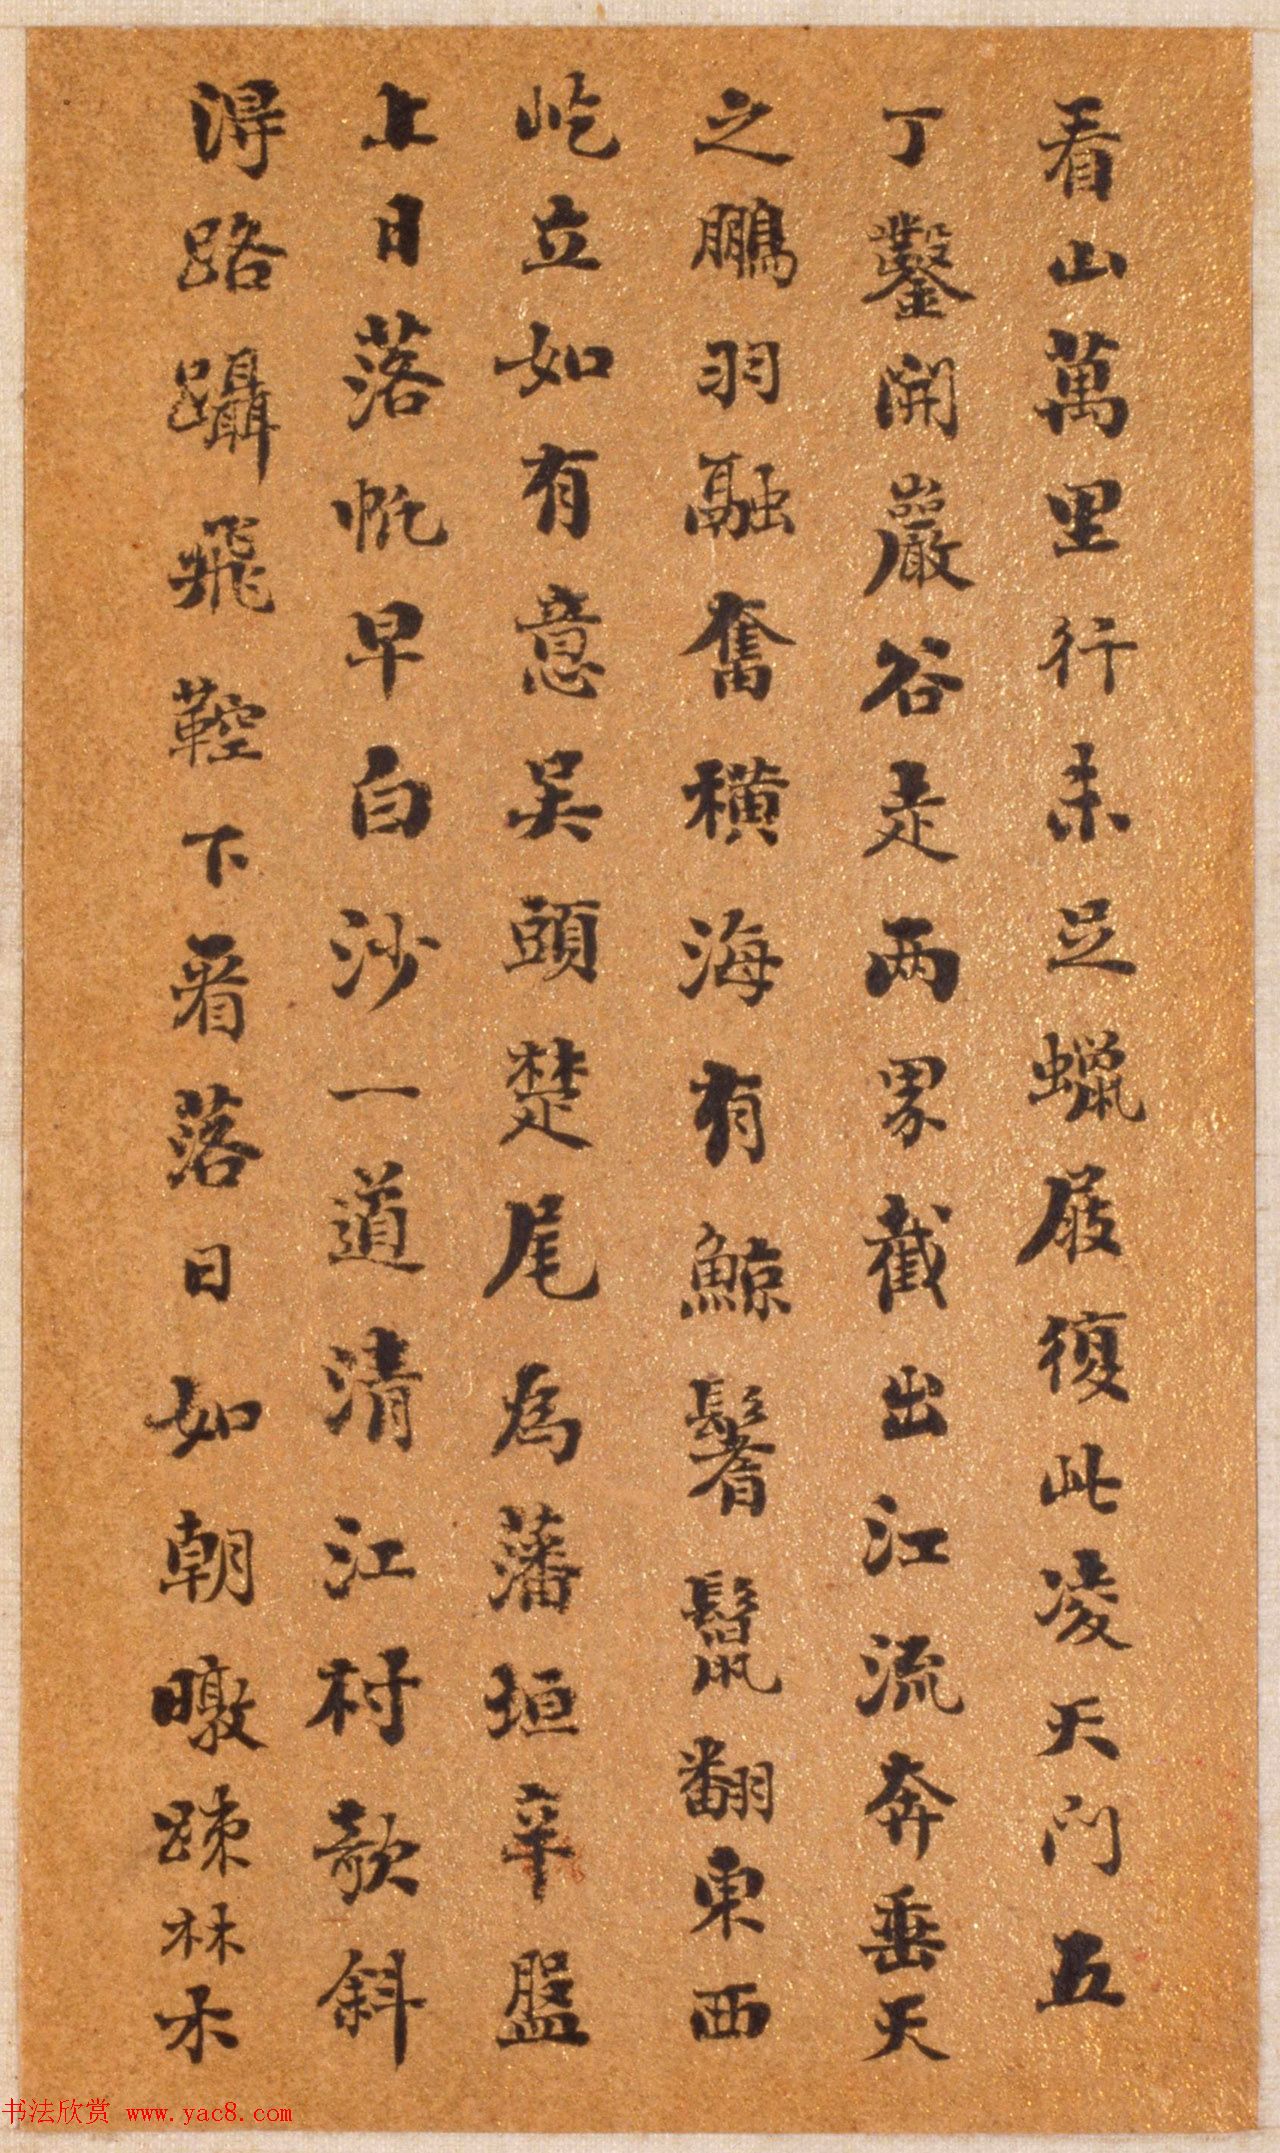 看山萬里行未足蠟屐復此凌天門五
丁鑿開巖谷走兩界截出江流奔垂天
之鵬羽融奮橫海有鯨鬐鬣翻東西
屹立如有意吳頭楚尾為藩垣辛盤
上日落帆早白沙一道清江村欹斜
得路躡飛鞚下看落日如朝暾疎林木
书法欣赏 www.yac8.com